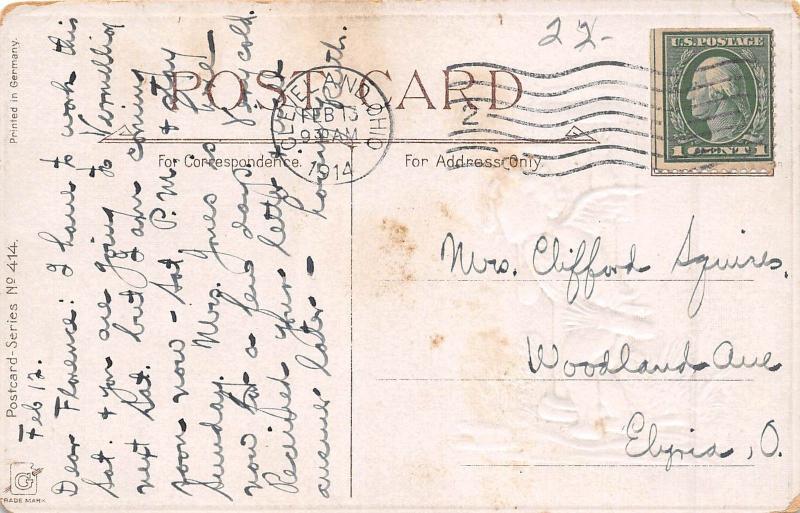 22-
POST CARD
U.S. POSTAGE
1 CENT 1
CLEVELAND, OHIO
FEB 13
930AM
1914
2
For Correspondence.
For Address Only.
Printed in Germany.
Postcard-Series No 414.
TRADE MARK
Feb 12.
Dear Florence: I have to work this
Sat. & you are going to Vermillion
next Sat. but I am coming
soon now - Sat P.M. & stay
Sunday. Mrs. Jones is
now for a few days. Very cold.
Received your letter &
answer later -
Mrs. Clifford Squires,
Woodland Ave
Elyria, O.